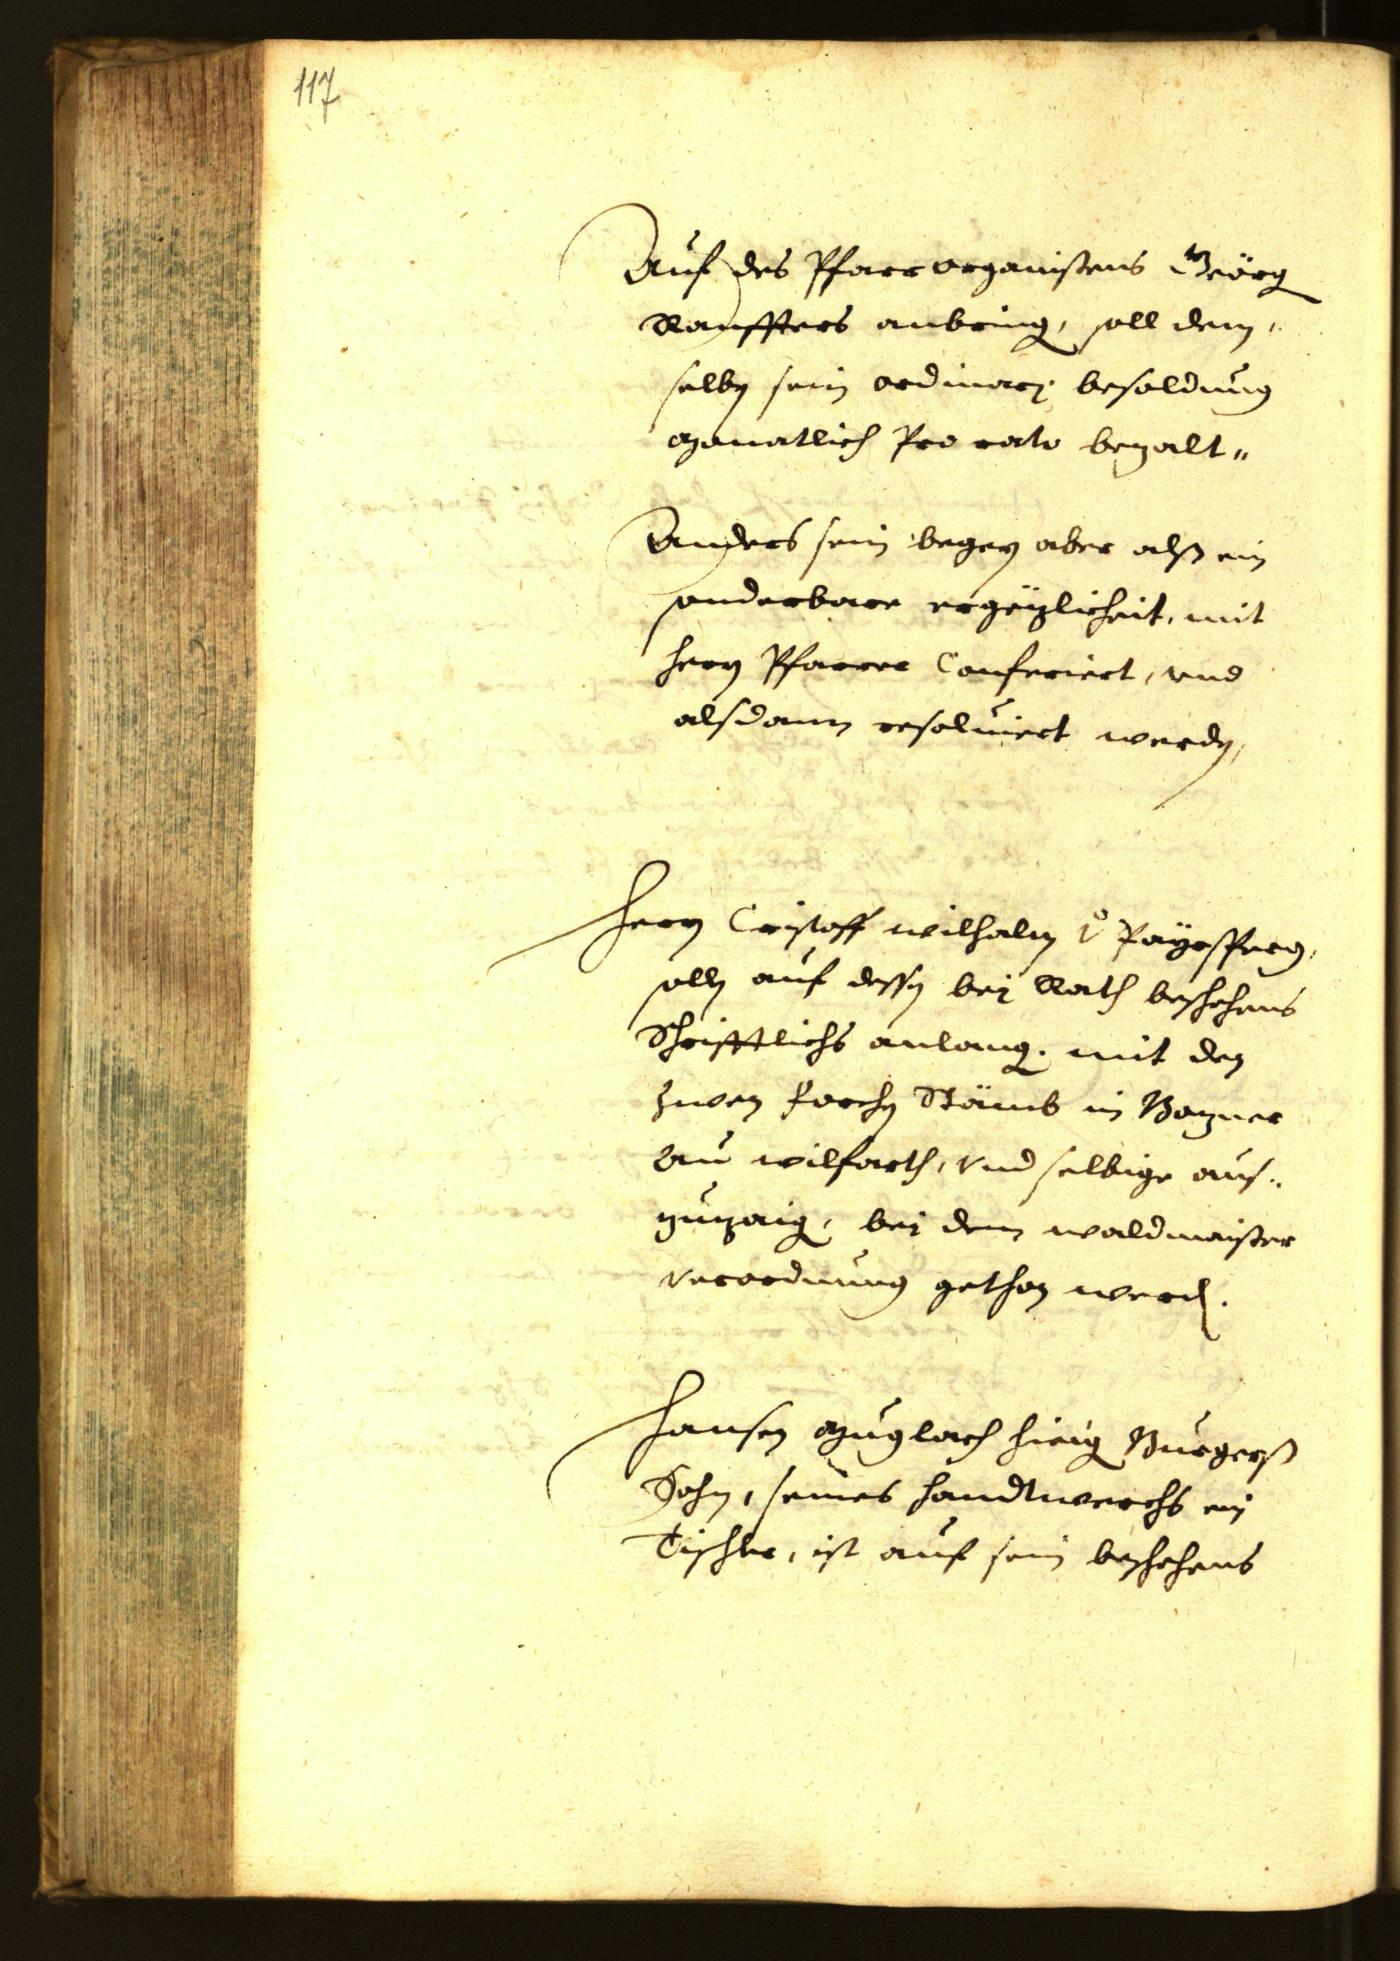 117
Auf des Pfarrorganistens Geörg
Rauffters anbring, soll dem,
selbn sein ordinarj besoldung
monatlich Pro rato bezalt„
Anders sein begern aber alß ein
sonderbare ergözlicheit, mit
herrn Pfarrer Conferiert, vnd
alsdann resolviert werdn,
Herrn Cristoff wilhalm v Payrsperg,
solln auf dessn bej Rath beschehens
Schrifftlichs anlang. mit den
zwen forchn Stämb in Bozner
Au wilfarth, vnd selbige aus„
zuzaig, bej dem waldmaister
verordnung gethon werd.
Hansen Muglach hieig Burgerß
Sohn, seines handtwerchs ein
Tischler, ist auf sein beschehens